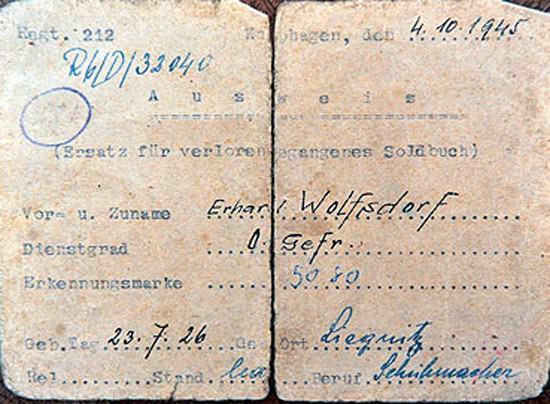 Regt. 212 hagen, den 4.10.1945
Rb/D/32040
Ausweis
(Ersatz für verlorengegangenes Soldbuch)
Vor- u. Zuname Erhard Wolfsdorf
Dienstgrad O. Gefr.
Erkennungsmarke 5080
Geb.Tag 23.7.26 Geb. Ort Liegnitz
Rel. Stand Beruf Schuhmacher